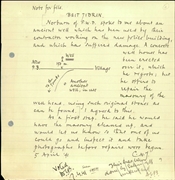 Note for file
BEIT JIBRIN
Northern of P.W.D. spoke to me about an
ancient well which has been used by their
contractors working on the new police building,
and which has suffered damage. A concrete
well house has
been erected
over it, which
he regrets; but
he offers to
repair the
masonry of the
well head, using such original stones as
can be found. I agreed to this.
As a first step, he said he would
have the masonry cleaned up, and
would let us know in time so one of us
could go and inspect it and take
photographs before repairs were begun